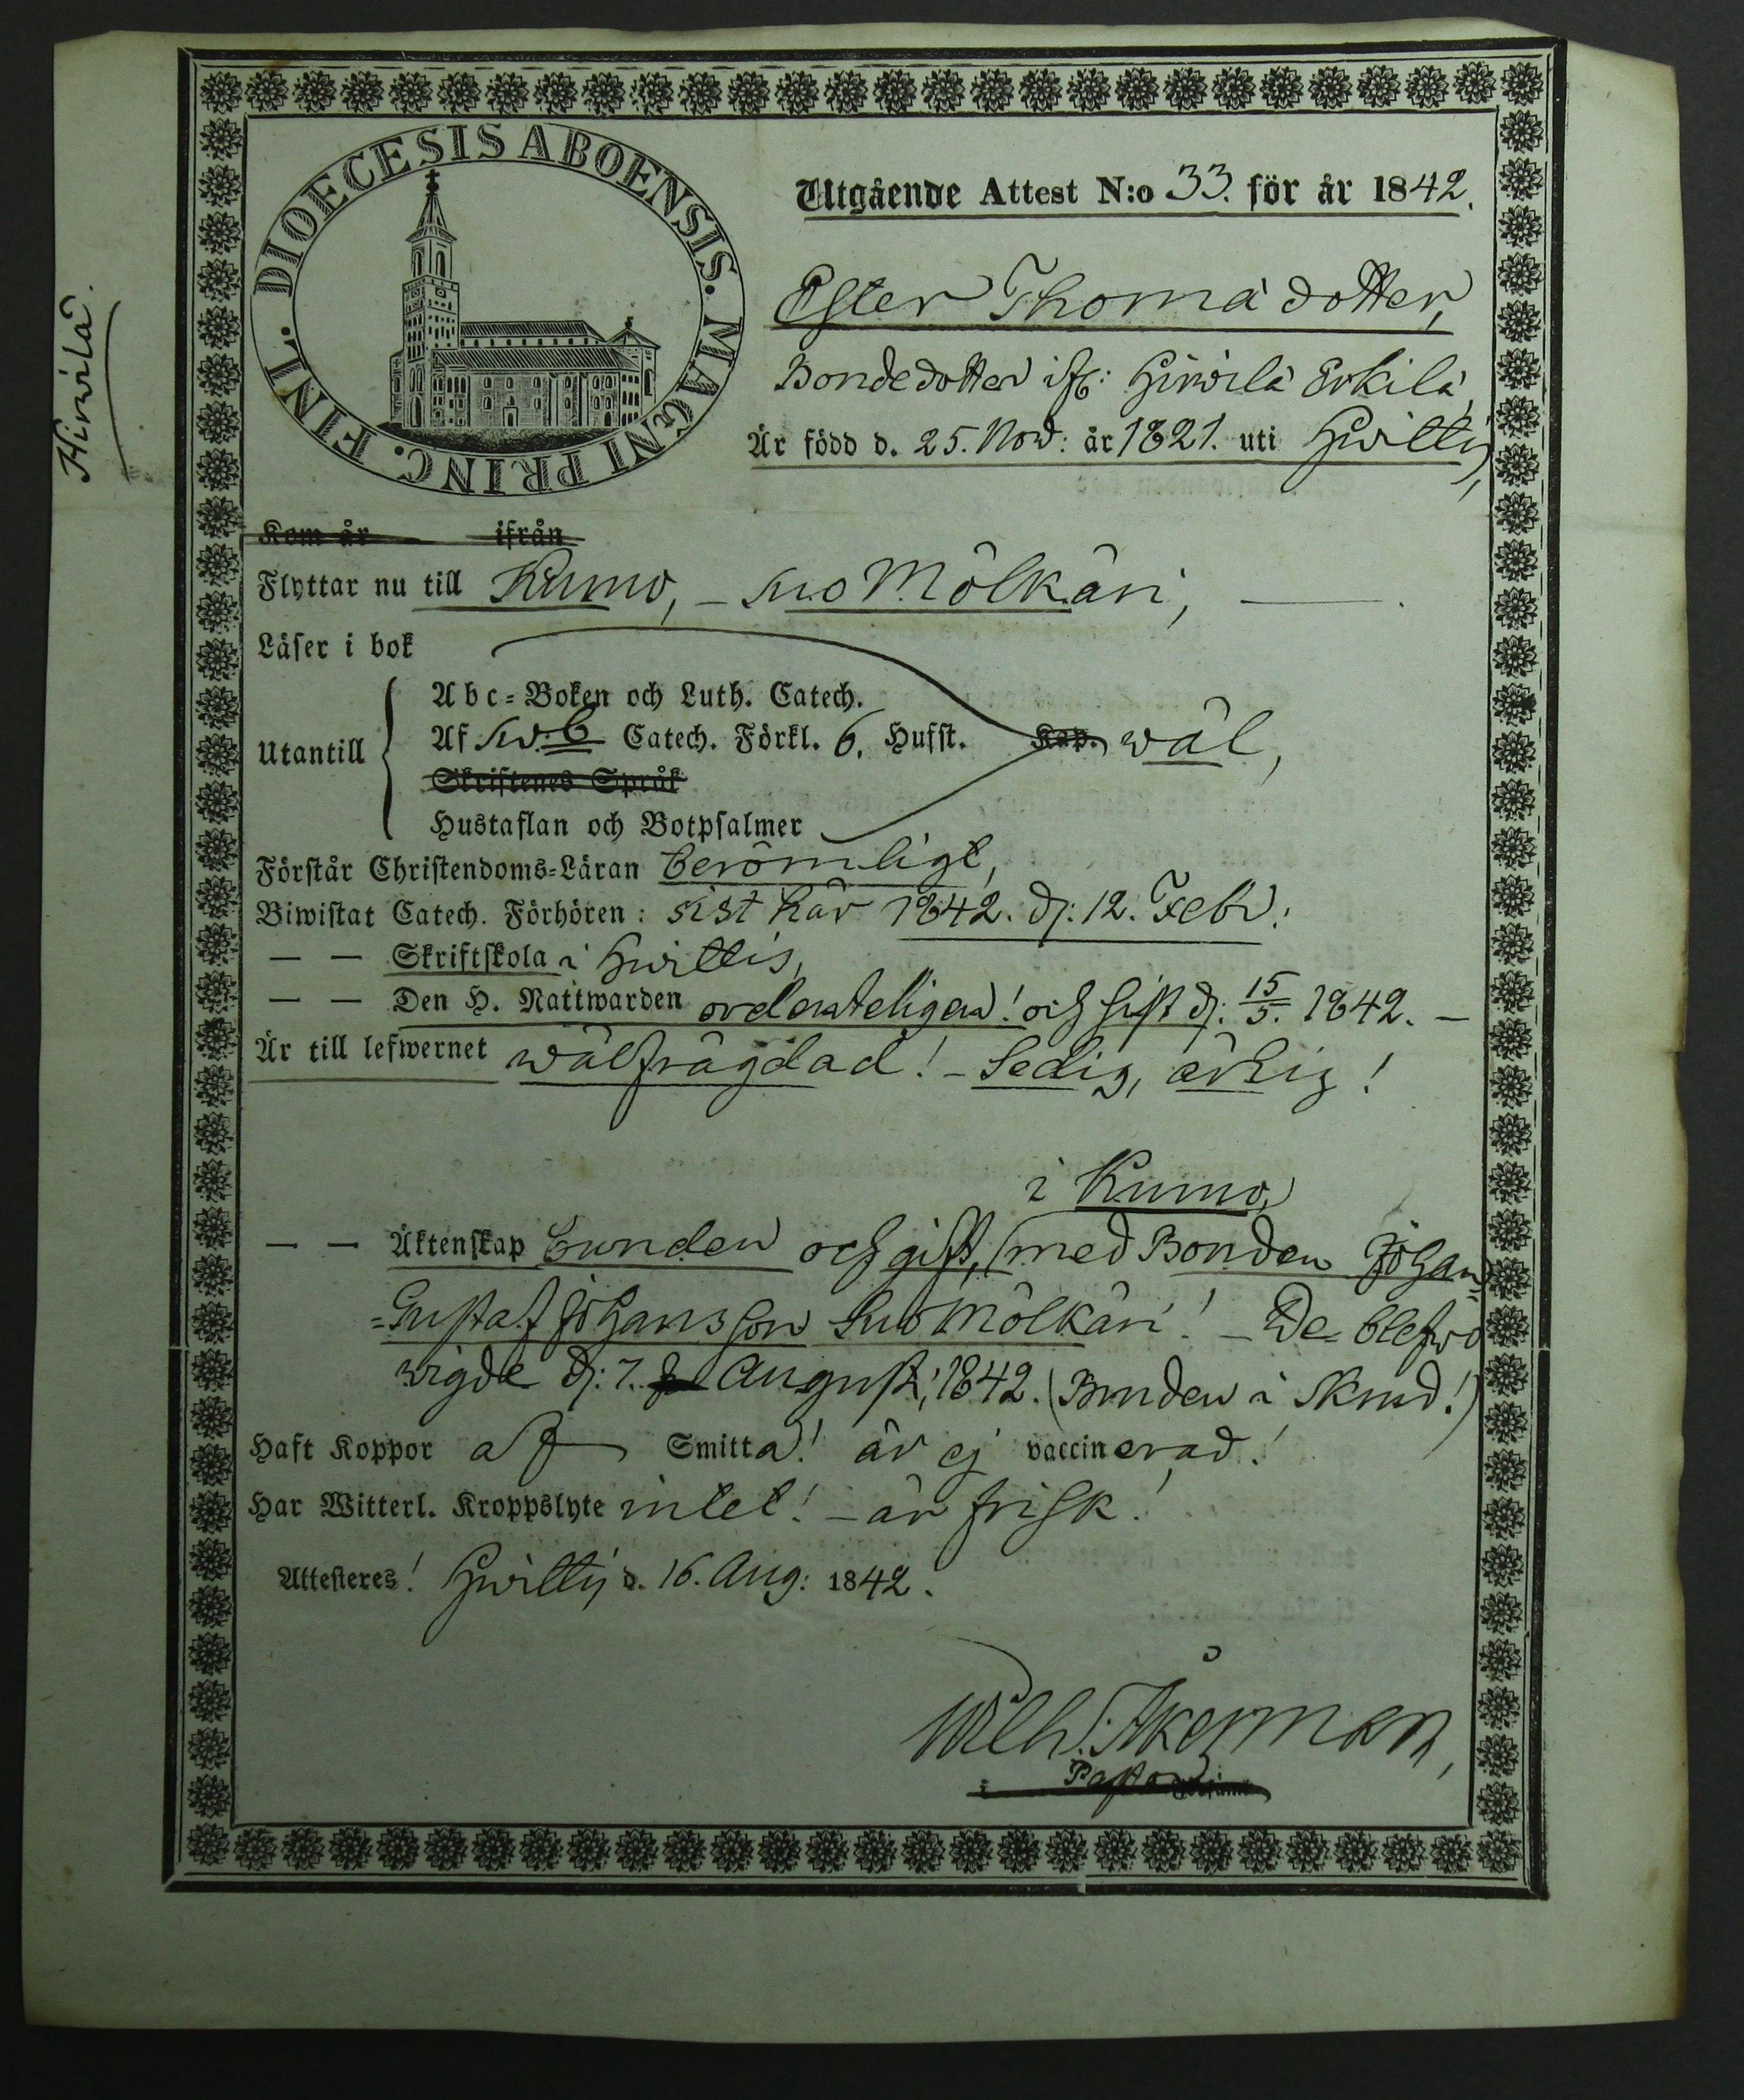 Hirvilä.
DIOECESIS ABOENSIS. MAGNI PRINC. FINL.
Utgående Attest N:o 33. för år 1842.
Ester Thomä dotter,
Bondedotter ifr: Hirvilä Erkilä,
Är född d. 25. Nov: år 1821. uti Hvittis,
Kom år ifrån
Flyttar nu till Kumo, – Suo Mölkäri,
Läser i bok
Abc-Boken och Luth. Catech.
Utantill Af Sv:b Catech. Förkl. 6. Hufst. Kap. wäl,
Skriftenes Språk
Hustaflan och Botpsalmer
Förstår Christendoms-Läran berömligt,
Biwistat Catech. Förhören: sist här 1842. d: 12. Febr:
— — Skriftskola i Hvittis,
— — Den H. Nattwarden ordenteligen! och sist d: 15/5. 1842. –
Är till lefwernet wälfrägdad! – Sedig, ärlig!
i Kumo,
— — Äktenskap bunden och gift, (med Bonden Johan
=Gustaf Johansson Suo Mölkäri! – De blefvo
wigde d: 7. August; 1842. (Bruden i Skrud!)
Haft Koppor af Smitta! är ej vaccinerad!
Har Witterl. Kroppslyte intet! – är frisk!
Attesteres! Hvittis d. 16. Aug: 1842.
Wilh: Åkerman,
i Pastor